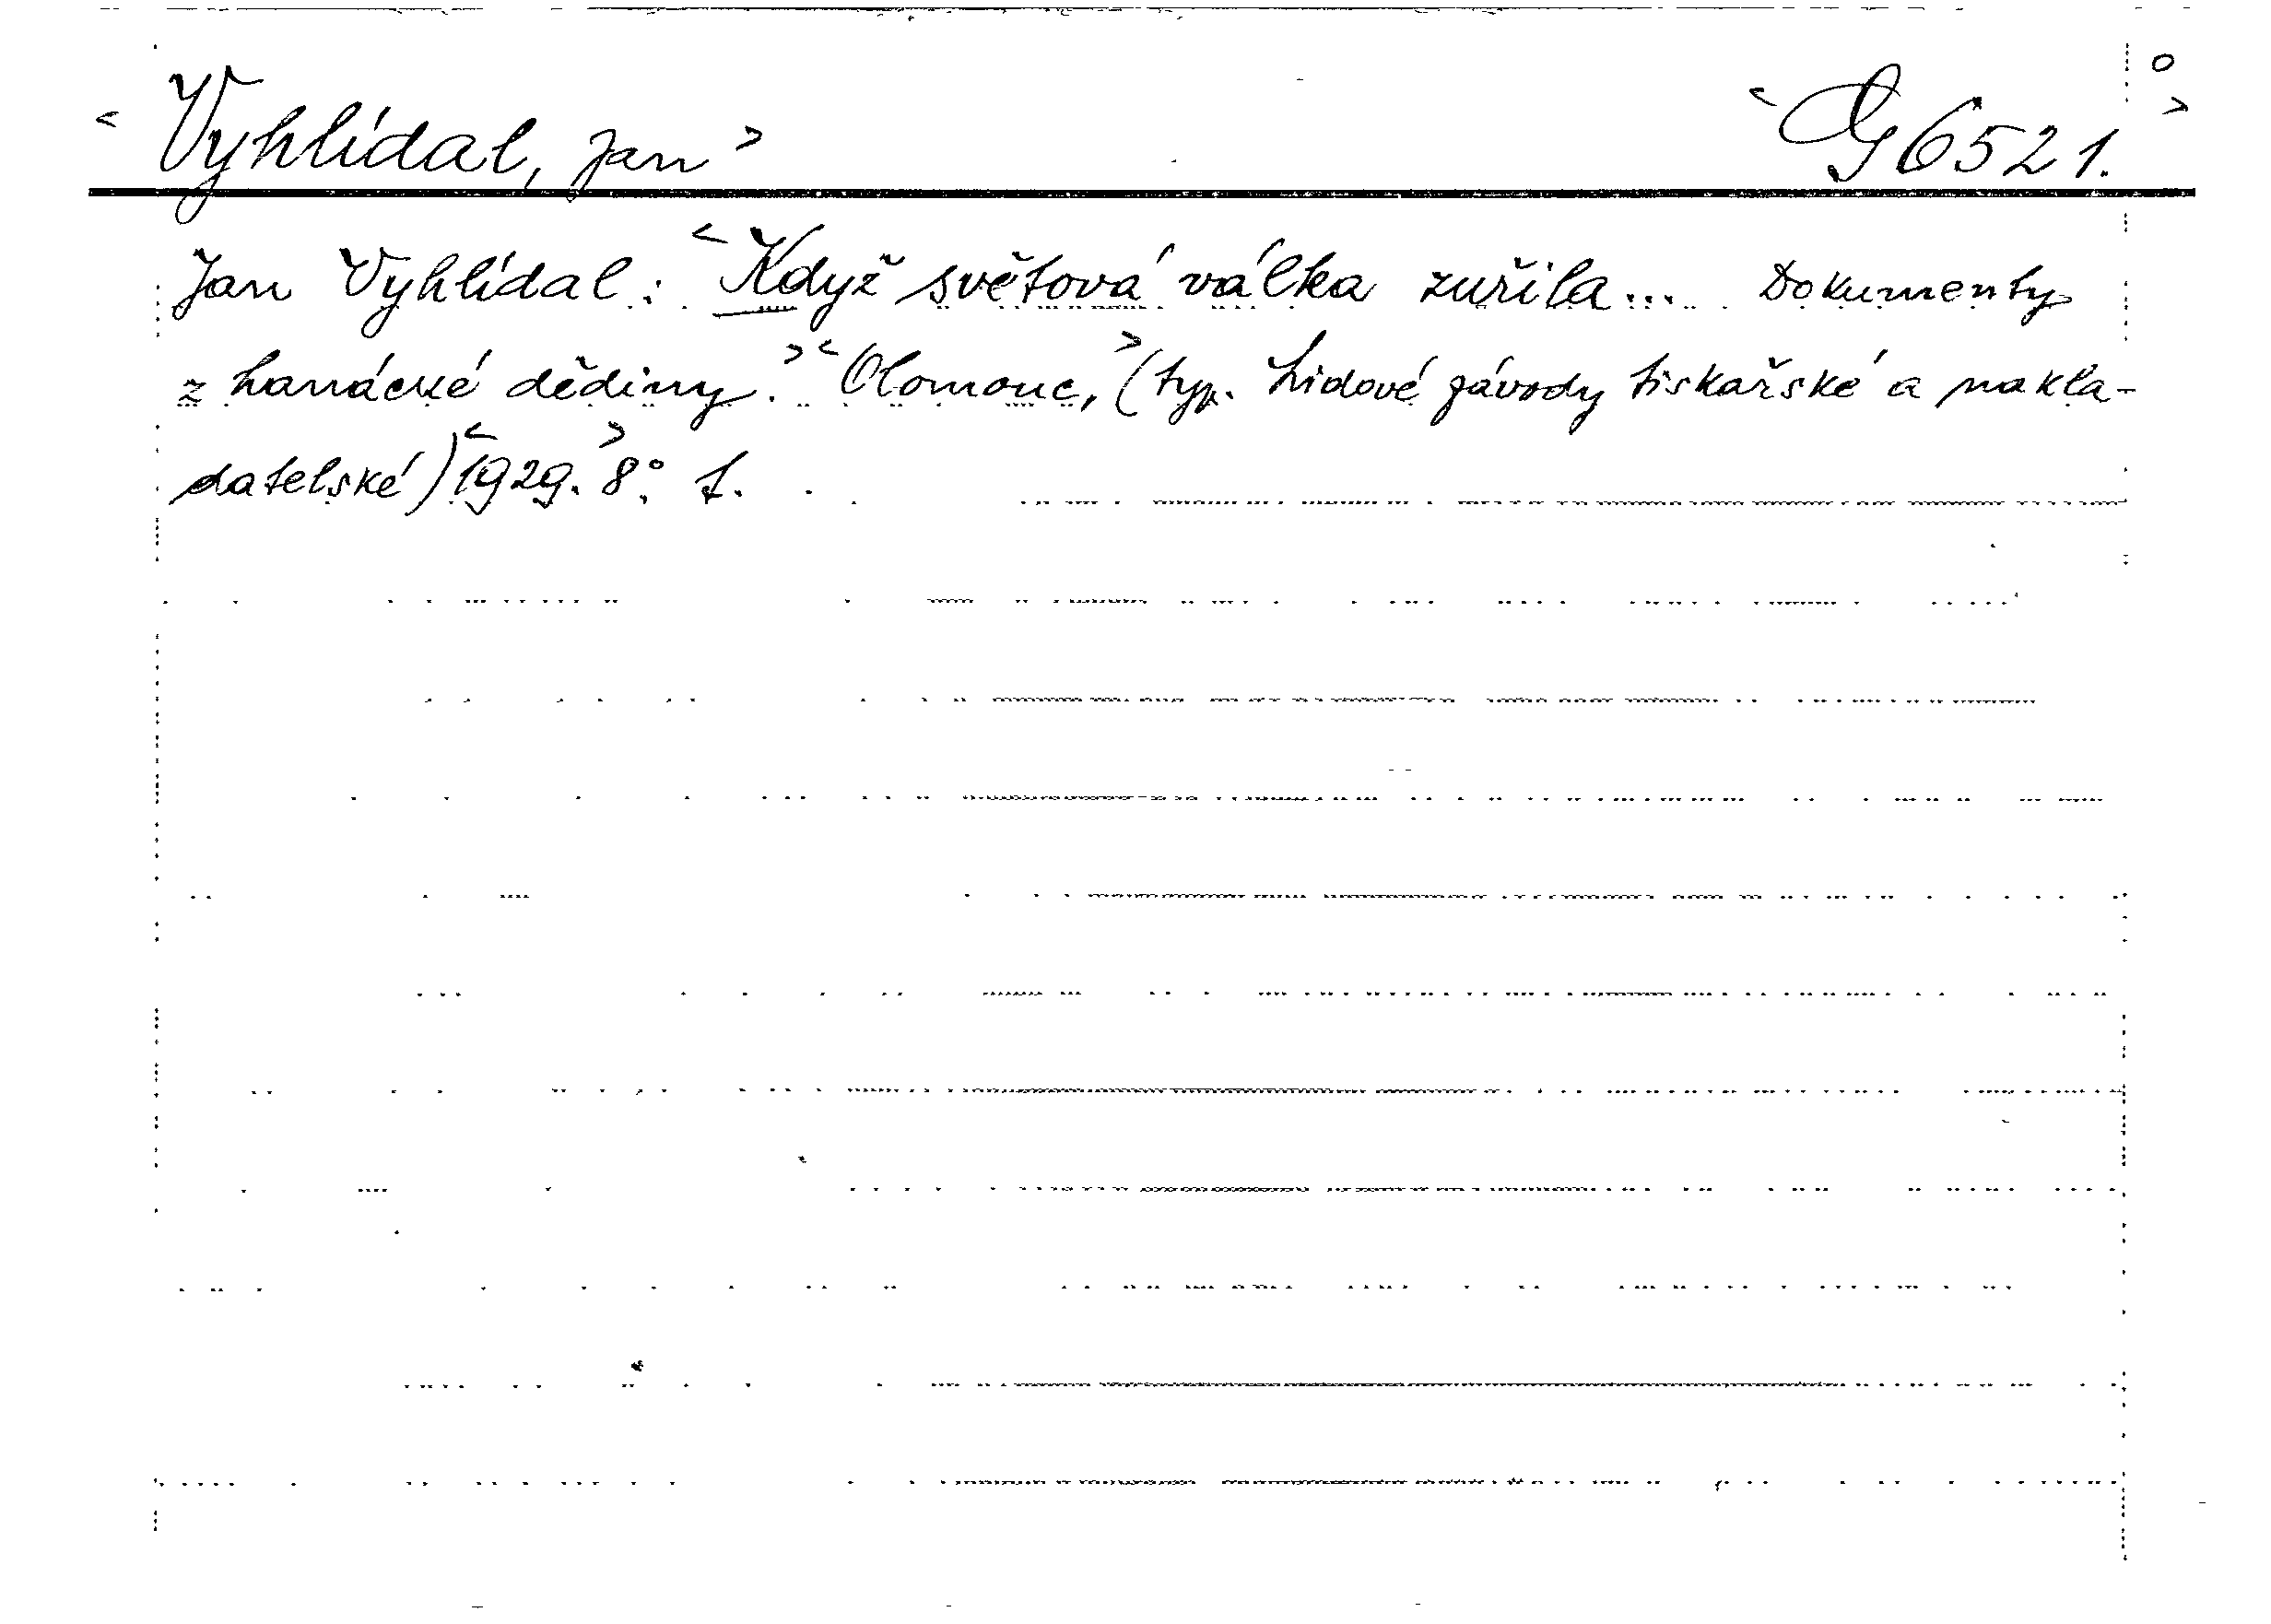 <Vyhlídal, Jan> <G 6521.> o
Jan Vyhlídal: <Když světová válka zuřila... Dokumenty
z hanácké dědiny.> <Olomouc,> (typ. Lidové závody tiskařské a nakla-
datelské) <1929.> 8°. 1.